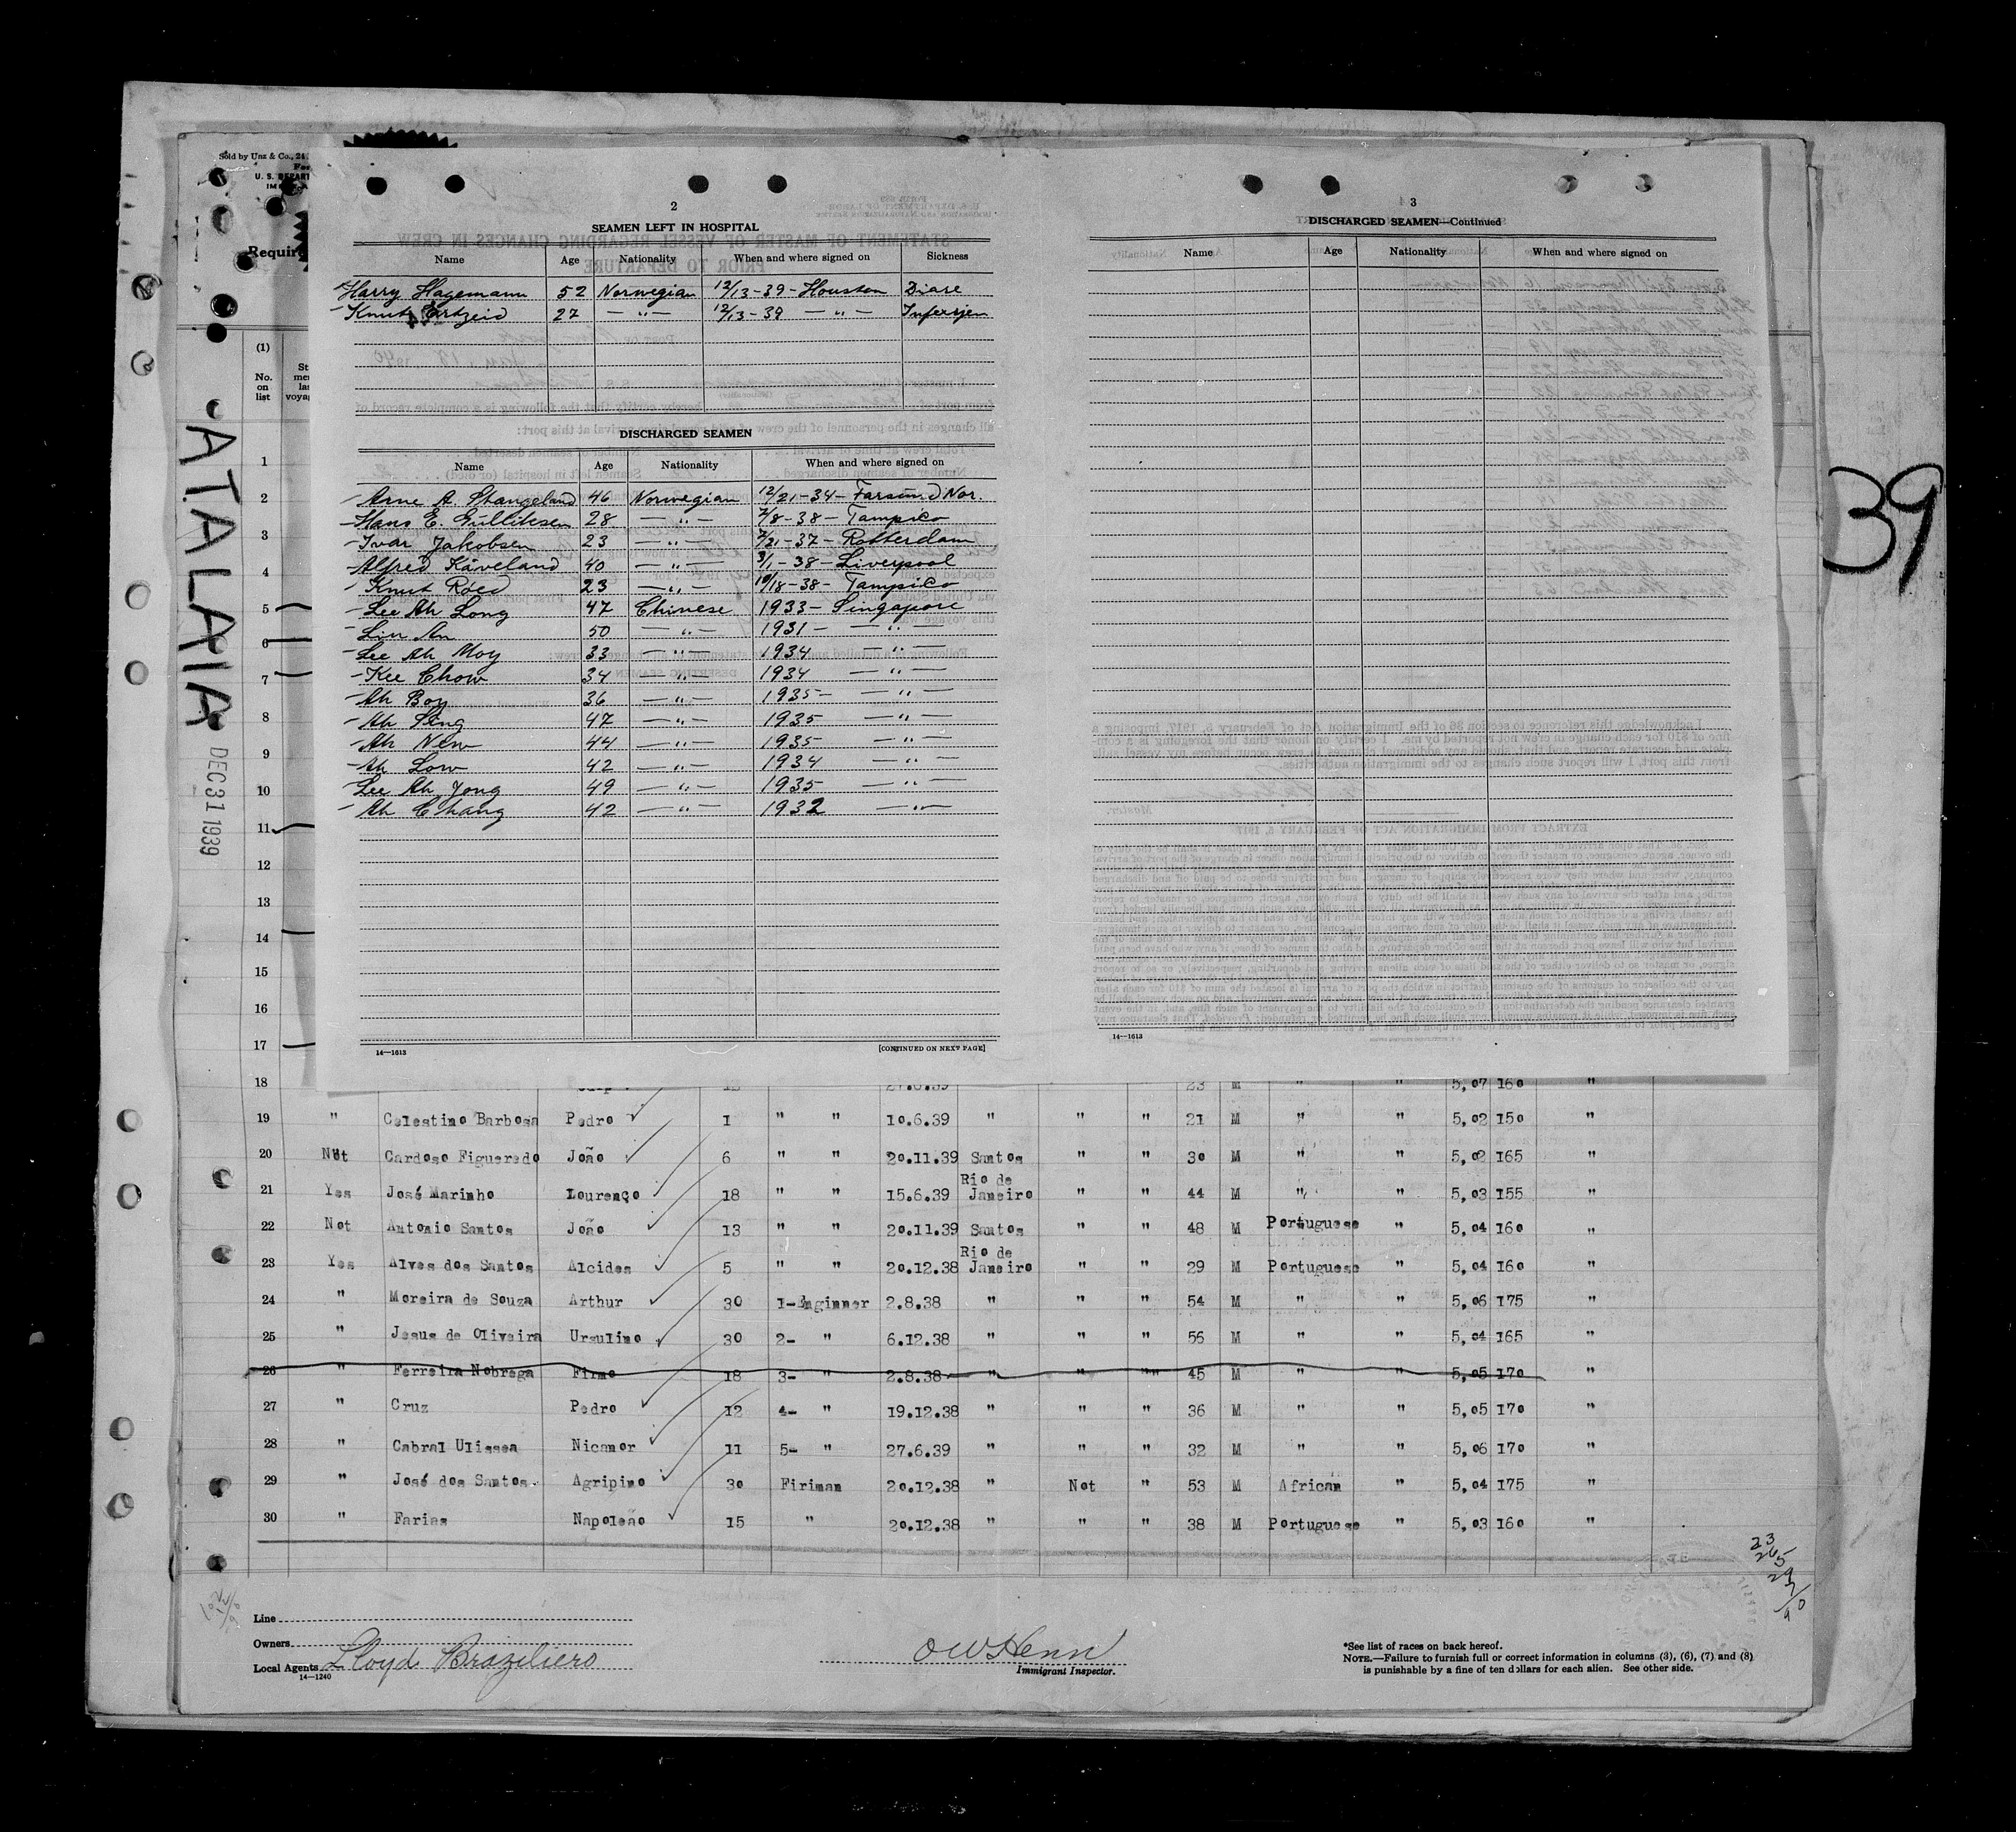 Sold by Unz & Co., 24
U. S. DEPART
Require
ATALAIA
DEC 31 1939
39
2
SEAMEN LEFT IN HOSPITAL
Name Age Nationality When and where signed on Sickness
Harry Hagemann 52 Norwegian 12/13-39-Houston Diare
Knut Ertzeid 27 —"— 12/13-39 —"—
DISCHARGED SEAMEN
Name Age Nationality When and where signed on
Arne A. Stangeland 46 Norwegian 12/21-34-Farsund Nor.
Hans E. Gullitesen 28 —"— 7/8-38-Tampico
Ivar Jakobsen 23 —"— 7/21-37-Rotterdam
Alfred Kaveland 40 —"— 3/1-38-Liverpool
Knut Röed 23 —"— 10/18-38-Tampico
Lee Ah Long 47 Chinese 1933-Singapore
Lim An 50 —"— 1931- —"—
Lee Ah Moy 33 —"— 1934 —"—
Kee Chow 34 —"— 1934 —"—
Ah Boy 36 —"— 1935- —"—
Ah Sing 47 —"— 1935 —"—
Ah New 44 —"— 1935 —"—
Ah Low 42 —"— 1934 —"—
Lee Ah Jong 49 —"— 1935 —"—
Ah Chang 42 —"— 1932 —"—
14—1613 [CONTINUED ON NEXT PAGE]
3
DISCHARGED SEAMEN—Continued
Name Age Nationality When and where signed on
14—1613
(1)
No.
on
list
1
2
3
4
5
6
7
8
9
10
11
12
13
14
15
16
17
18 23 M " " 5,07 160 "
19 " Celestino Barbosa Pedro 1 " " 10.6.39 " " " 21 M " " 5,02 150 "
20 Not Cardoso Figueredo João 6 " " 20.11.39 Santos " " 30 M " " 5,02 165 "
21 Yes José Marinho Lourenço 18 " " 15.6.39 Rio de Janeiro " " 44 M " " 5,03 155 "
22 Not Antonio Santos João 13 " " 20.11.39 Santos " " 48 M Portuguese " 5,04 160 "
23 Yes Alves dos Santos Alcides 5 " " 20.12.38 Rio de Janeiro " " 29 M Portuguese " 5,04 160 "
24 " Moreira de Souza Arthur 30 1-Enginner 2.8.38 " " " 54 M " " 5,06 175 "
25 " Jesus de Oliveira Ursulino 30 2- " 6.12.38 " " " 56 M " " 5,04 165 "
26 " Ferreira Nobrega Firmo 18 3- " 2.8.38 " " "" 45 M " " 5,05 170 "
27 " Cruz Pedro 12 4- " 19.12.38 " " " 36 M " " 5,05 170 "
28 " Cabral Ulissea Nicanor 11 5- " 27.6.39 " " " 32 M " " 5,06 170 "
29 " José dos Santos. Agripino 30 Firiman 20.12.38 " Not " 53 M African " 5,04 175 "
30 " Farias Napoleão 15 " 20.12.38 " " " 38 M Portuguese " 5,03 160 "
Line
Owners
Local Agents Lloyd Braziliero
14—1240
OW Henn
Immigrant Inspector.
*See list of races on back hereof.
NOTE.—Failure to furnish full or correct information in columns (3), (6), (7) and (8)
is punishable by a fine of ten dollars for each alien. See other side.